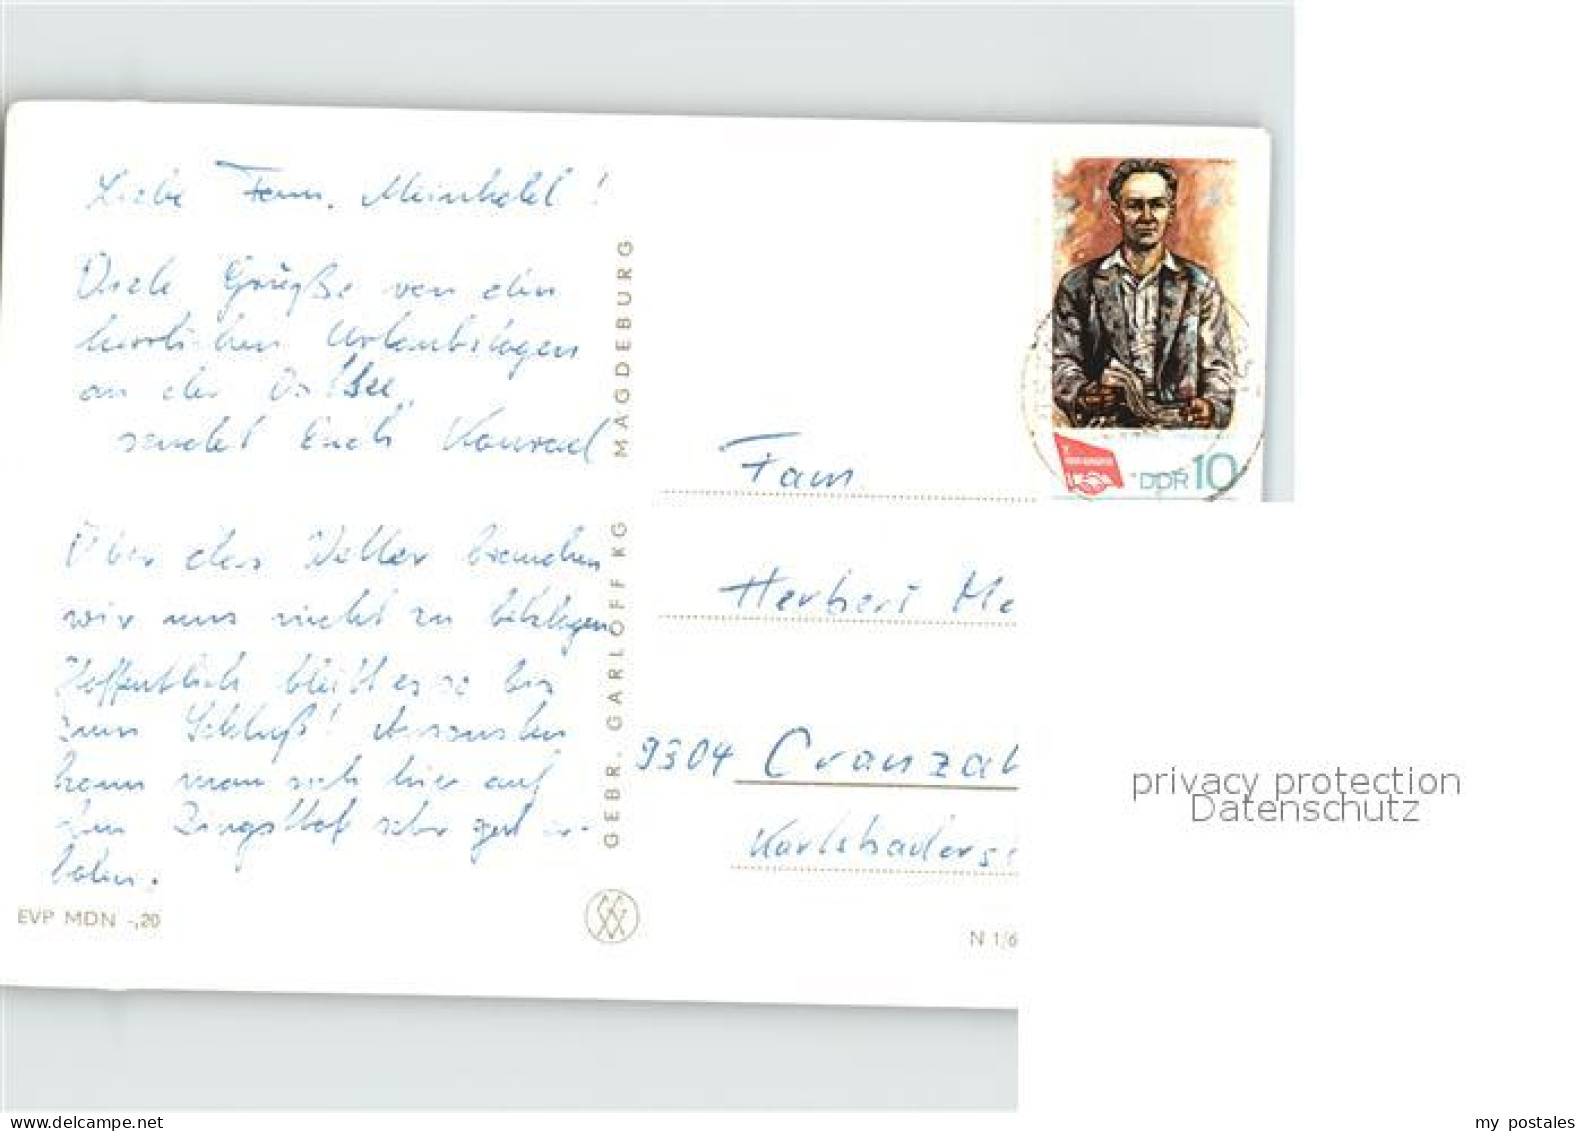 Liebe Fam. Meinhold!
Viele Grüße von den
herrlichen Urlaubstagen
an der Ostsee,
sendet Euch Konrad
Über das Wetter brauchen
wir uns nicht zu beklagen
Hoffentlich bleibt es so bis
zum Schluß! Ansonsten
kann man sich hier auf
dem Zingsthof sehr gut er-
holen.
EVP MDN -,20
GEBR. GARLOFF KG MAGDEBURG
DDR 10
Fam.
Herbert Me
9304 Cranzah
Karlsbaderst
N 1/6
privacy protection
Datenschutz
my postales